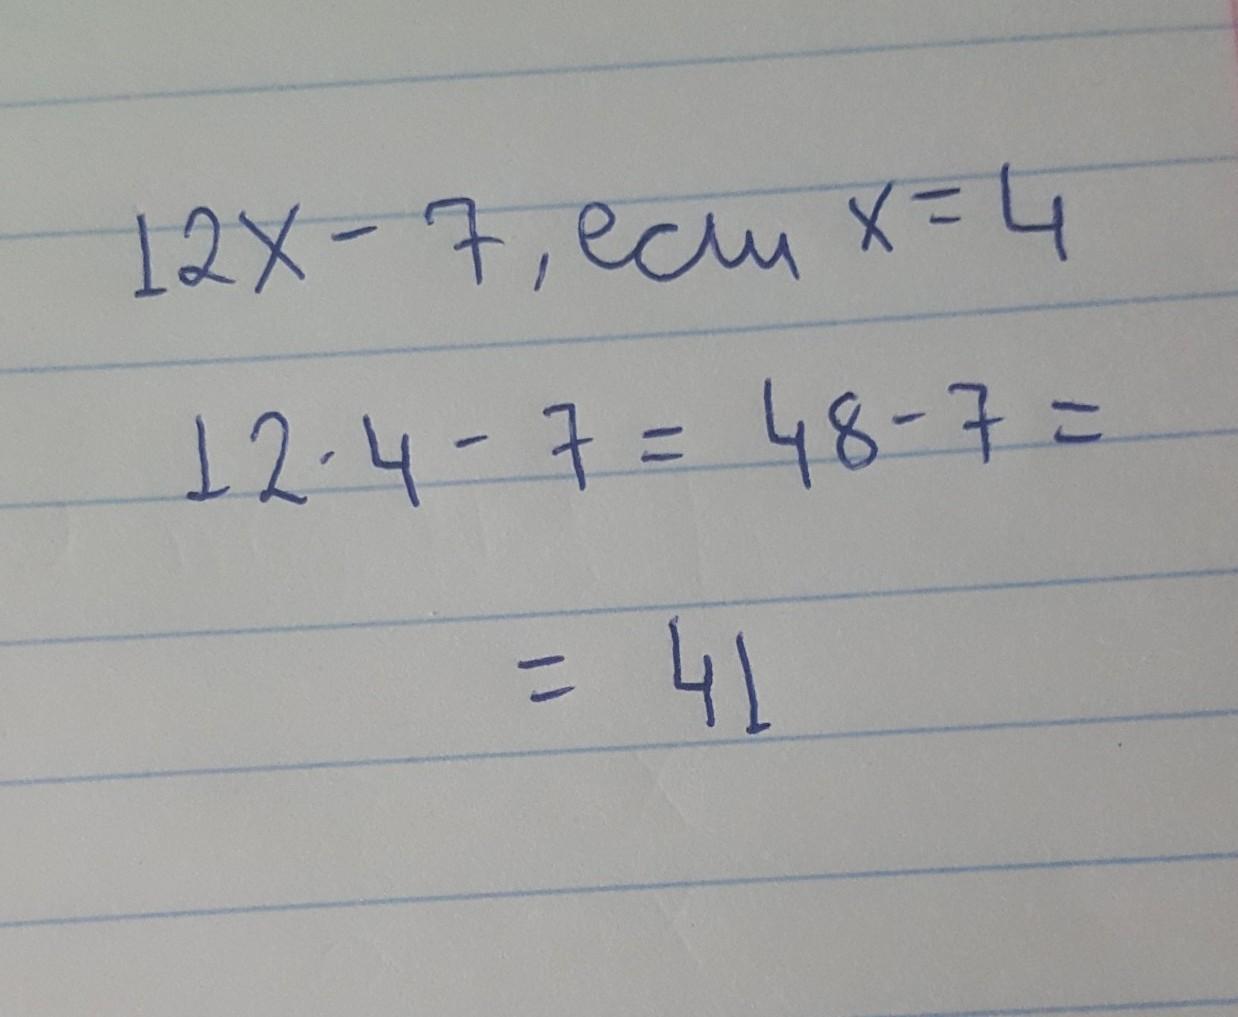 12x - 7, если x = 4
12 · 4 - 7 = 48 - 7 =
= 41